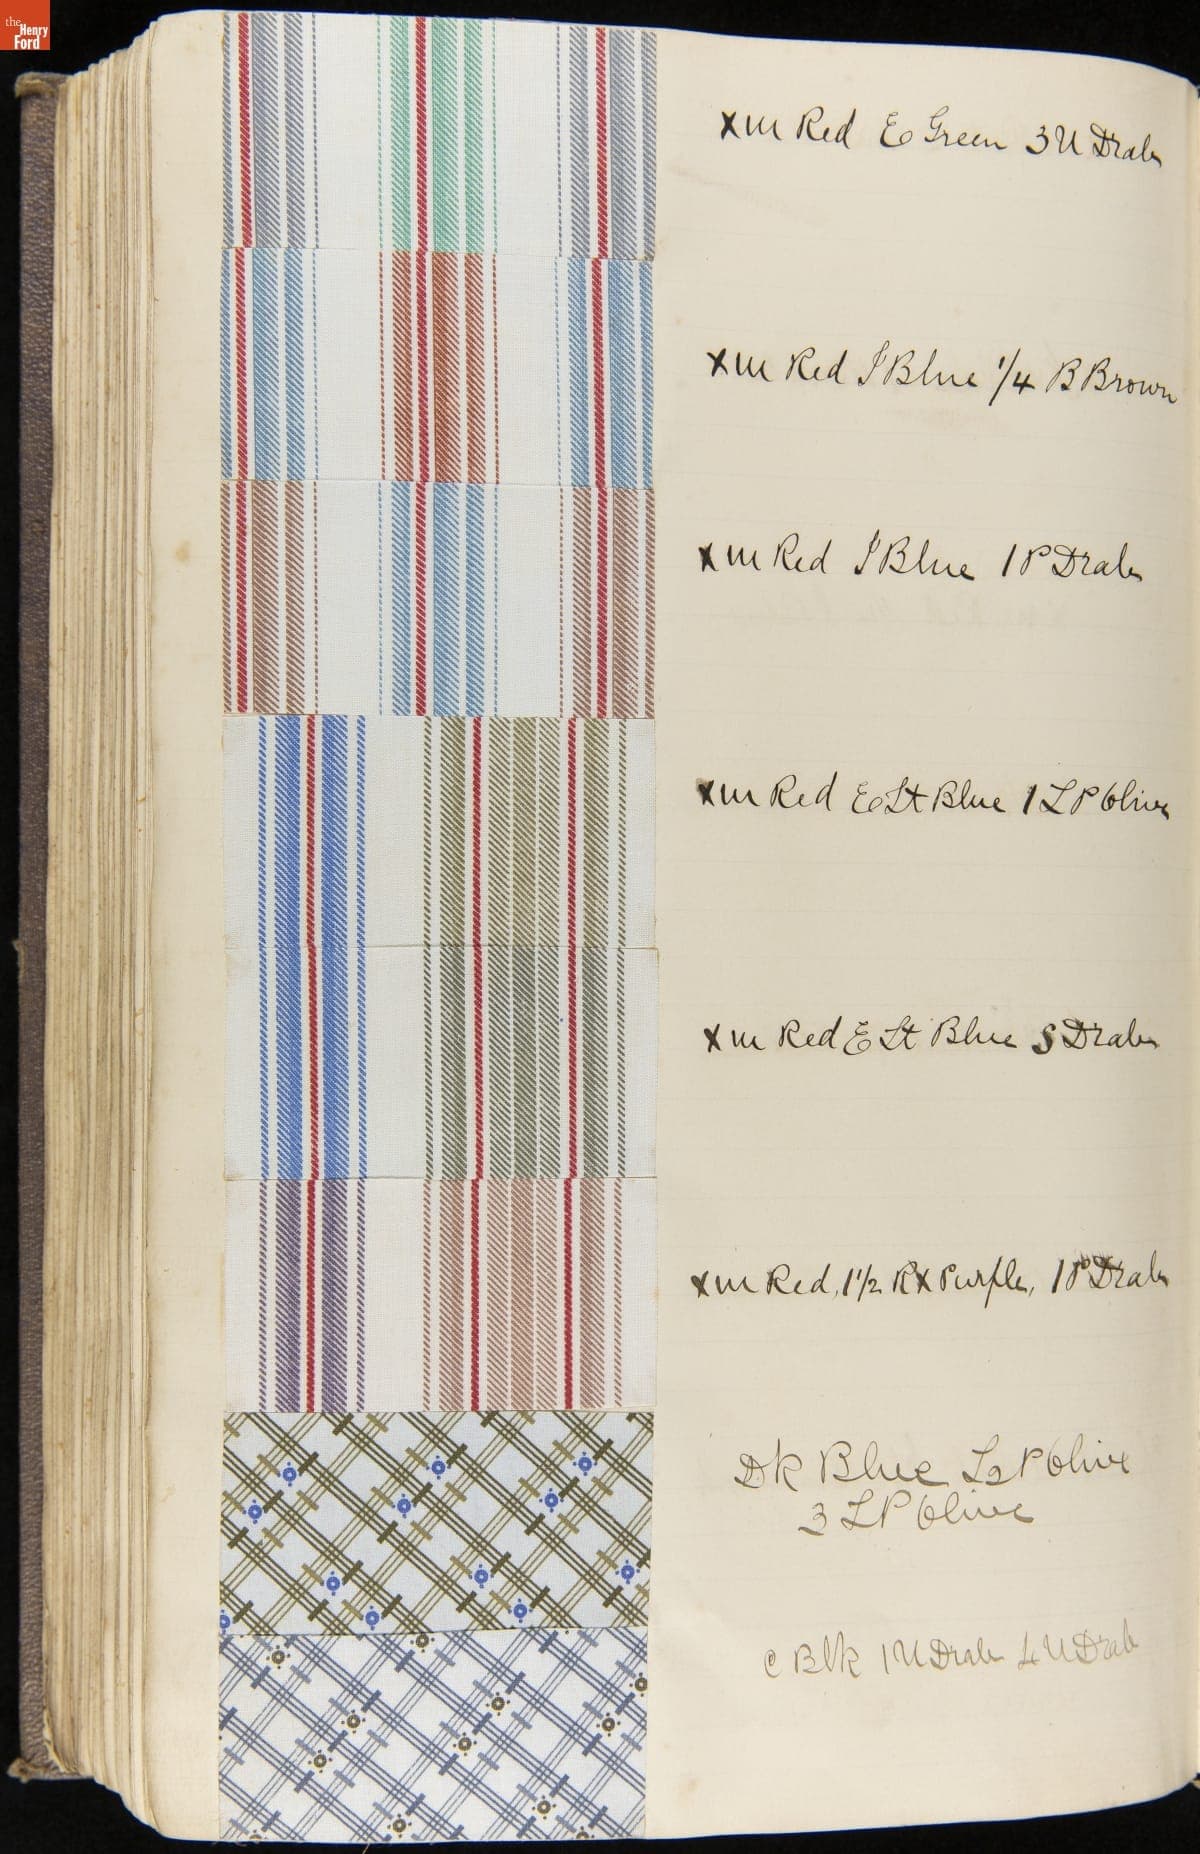 the Henry Ford
xm Red E Green 3 U Drab
xm Red J Blue 1/4 B Brown
xm Red J Blue 1 P Drab
xm Red E Lt Blue 1 L P Olive
xm Red E Lt Blue S Drab
xm Red, 1 1/2 RX Purple, 1 P Drab
Dk Blue L P Olive
3 L P Olive
C Blk 1 U Drab 4 U Drab